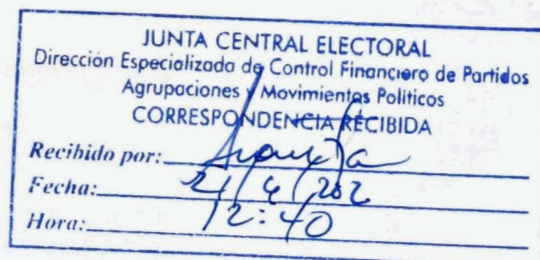 JUNTA CENTRAL ELECTORAL
Dirección Especializada de Control Financiero de Partidos
Agrupaciones y Movimientos Políticos
CORRESPONDENCIA RECIBIDA
Recibido por:
Fecha: 21/4/202
Hora: 12:40